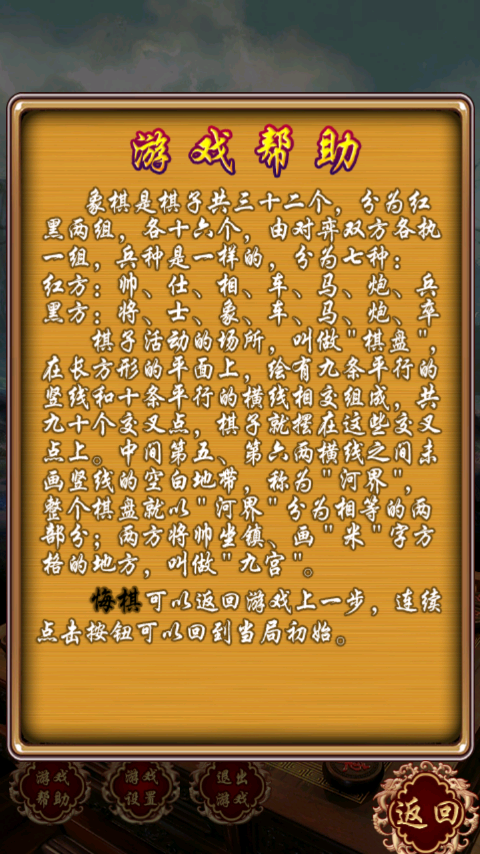 游戏帮助
象棋是棋子共三十二个，分为红
黑两组，各十六个，由对弈双方各执
一组，兵种是一样的，分为七种：
红方：帅、仕、相、车、马、炮、兵
黑方：将、士、象、车、马、炮、卒
棋子活动的场所，叫做"棋盘"，
在长方形的平面上，绘有九条平行的
竖线和十条平行的横线相交组成，共
九十个交叉点，棋子就摆在这些交叉
点上。中间第五、第六两横线之间未
画竖线的空白地带，称为"河界"，
整个棋盘就以"河界"分为相等的两
部分；两方将帅坐镇、画"米"字方
格的地方，叫做"九宫"。
悔棋可以返回游戏上一步，连续
点击按钮可以回到当局初始。
游戏帮助
游戏设置
退出游戏
返回